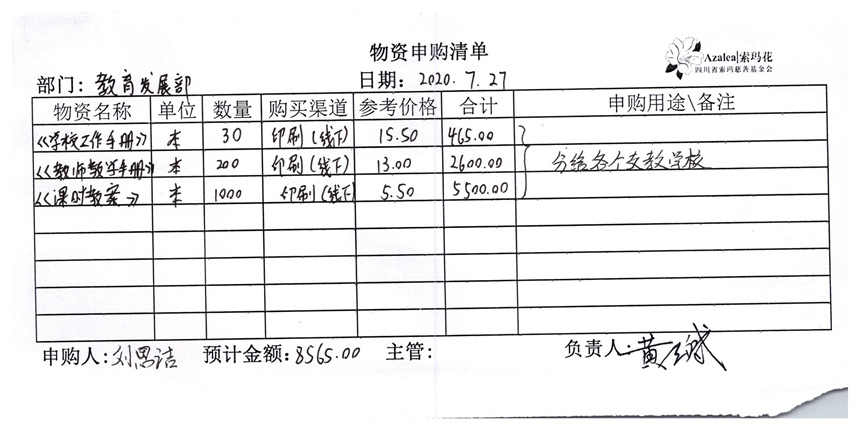 物资申购清单
Azalea|索玛花
四川省索玛慈善基金会
部门：教育发展部 日期：2020.7.27
物资名称 单位 数量 购买渠道 参考价格 合计 申购用途\备注
《学校工作手册》 本 30 印刷(线下) 15.50 465.00
《教师教学手册》 本 200 印刷(线下) 13.00 2600.00 分给各个支教学校
《课时教案》 本 1000 印刷(线下) 5.50 5500.00
申购人：刘思洁 预计金额：8565.00 主管： 负责人：黄